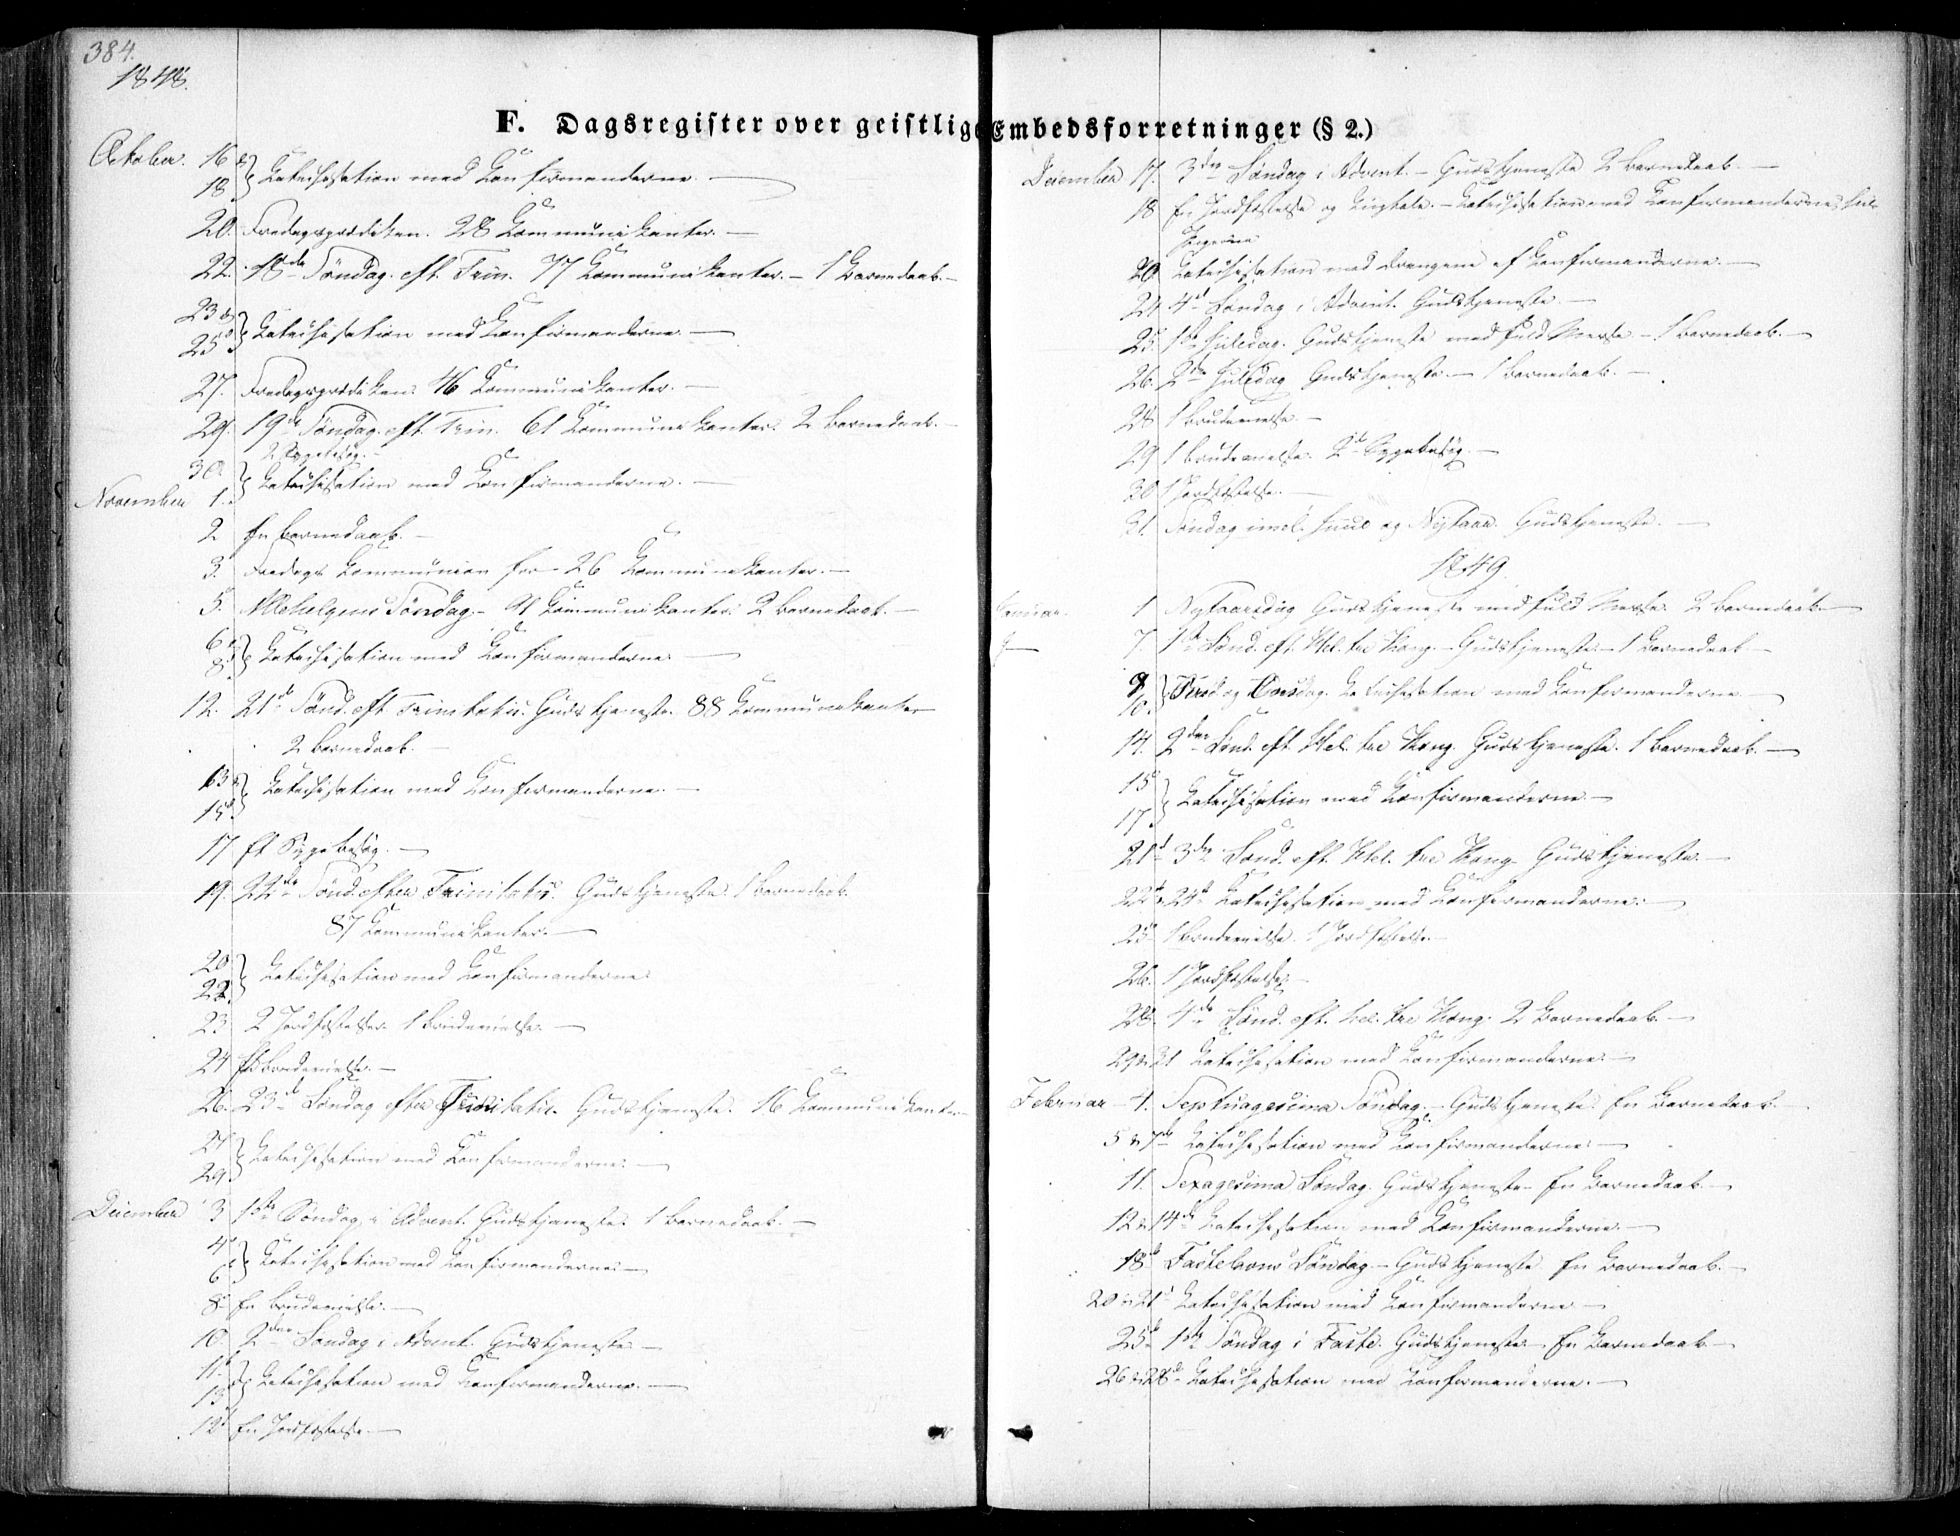 384.
1848.
F. Dagsregister over geistlige Embedsforretninger (§ 2.)
October. 16 &
18 } Catechisation med Confirmanderne. —
20. Fredagsprædiken. 28 Communikanter. —
22. 18de Søndag eft. Trin. 77 Communikanter. — 1 Barnedaab. —
23 &
25 } Catechisation med Confirmanderne. —
27. Fredagsprædiken. 46 Communikanter. —
29. 19de Søndag eft. Trin. 61 Communikanter. 2 Barnedaab. —
2 Sygebesøg. —
30.
November 1. } Catechisation med Confirmanderne. —
2 En Barnedaab. —
3. Fredags Communion for 26 Communikanter. —
5. Allehelgens Søndag. — 91 Communikanter. 2 Barnedaab. —
6 &
8. } Catechisation med Confirmanderne. —
12. 21de Sønd. eft Trinitatis. Gudstjeneste. 88 Communikanter
2 Barnedaab. —
13 &
15 } Catechisation med Confirmanderne. —
17 Et Sygebesøg. —
19. 22de Sønd. efter Trinitatis. Gudstjeneste. 1 Barnedaab.
87 Communikanter. —
20
22. } Catechisation med Confirmanderne.
23 2 Jordfæstelser. 1 Brudevielse. —
24 Brudevielse. —
26. 23de Søndag efter Trinitatis. Gudstjeneste. 16 Communikanter
27
29 } Catechisation med Confirmanderne. —
December 3 1ste Søndag i Advent. Gudstjeneste. 1 Barnedaab. —
4
6 } Catechisation med Confirmanderne. —
8 En Brudevielse. —
10. 2den Søndag i Advent. Gudstjeneste. —
11.
13 } Catechisation med Confirmanderne. —
12 En Jordfæstelse. —
December 17. 3die Søndag i Advent. — Gudstjeneste 2 Barnedaab. —
18 En Jordfæstelse og Liigtale. — Catechisation med Confirmandernes
Pigerne
20 Catechisation med Drengene af Confirmanderne. —
24 4de Søndag i Advent. Gudstjeneste. —
25. 1ste Juledag. Gudstjeneste med fuld Messe — 1 Barnedaab. —
26. 2den Juledag Gudstjeneste. — 1 Barnedaab. —
28 1 Brudevielse. —
29 1 Brudevielse. 2de Sygebesøg. —
30 1 Jordfæstelse. —
31. Søndag imel. Juul og Nytaar. Gudstjeneste. —
1849.
Januar. 1 Nytaarsdag Gudstjeneste med fuld Messe. 2 Barnedaab. —
7. 1ste Sønd. eft. Hel. tre Kong. — Gudstjeneste — 1 Barnedaab —
9
10. } Catechisation med Confirmanderne. —
14. 2den Sønd. eft. Hel. tre Kong. Gudstjeneste. 1 Barnedaab. —
15
17. } Catechisation med Confirmanderne —
21 3die Sønd. eft. Hel. tre Kong. Gudstjeneste. —
22 & 24 Catechisation med Confirmanderne. —
25 1 Brudevielse. 1 Jordfæstelse. —
26. 1 Jordfæstelse. —
28. 4de Sønd. eft. Hel. tre Kong. 2 Barnedaab. —
29 & 31 Catechisation med Confirmanderne. —
Februar — 4. Septuagesima Søndag. — Gudstjeneste. En Barnedaab. —
5 & 7 Catechisation med Confirmanderne. —
11. Sexagesima Søndag. Gudstjeneste — En Barnedaab. —
12 & 14 Catechisation med Confirmanderne. —
18 Fastelavns Søndag — Gudstjeneste. En Barnedaab. —
20 & 21 Catechisation med Confirmanderne —
25 1ste Søndag i Faste. Gudstjeneste — En Barnedaab —
26 & 28 Catechisation med Confirmanderne. —